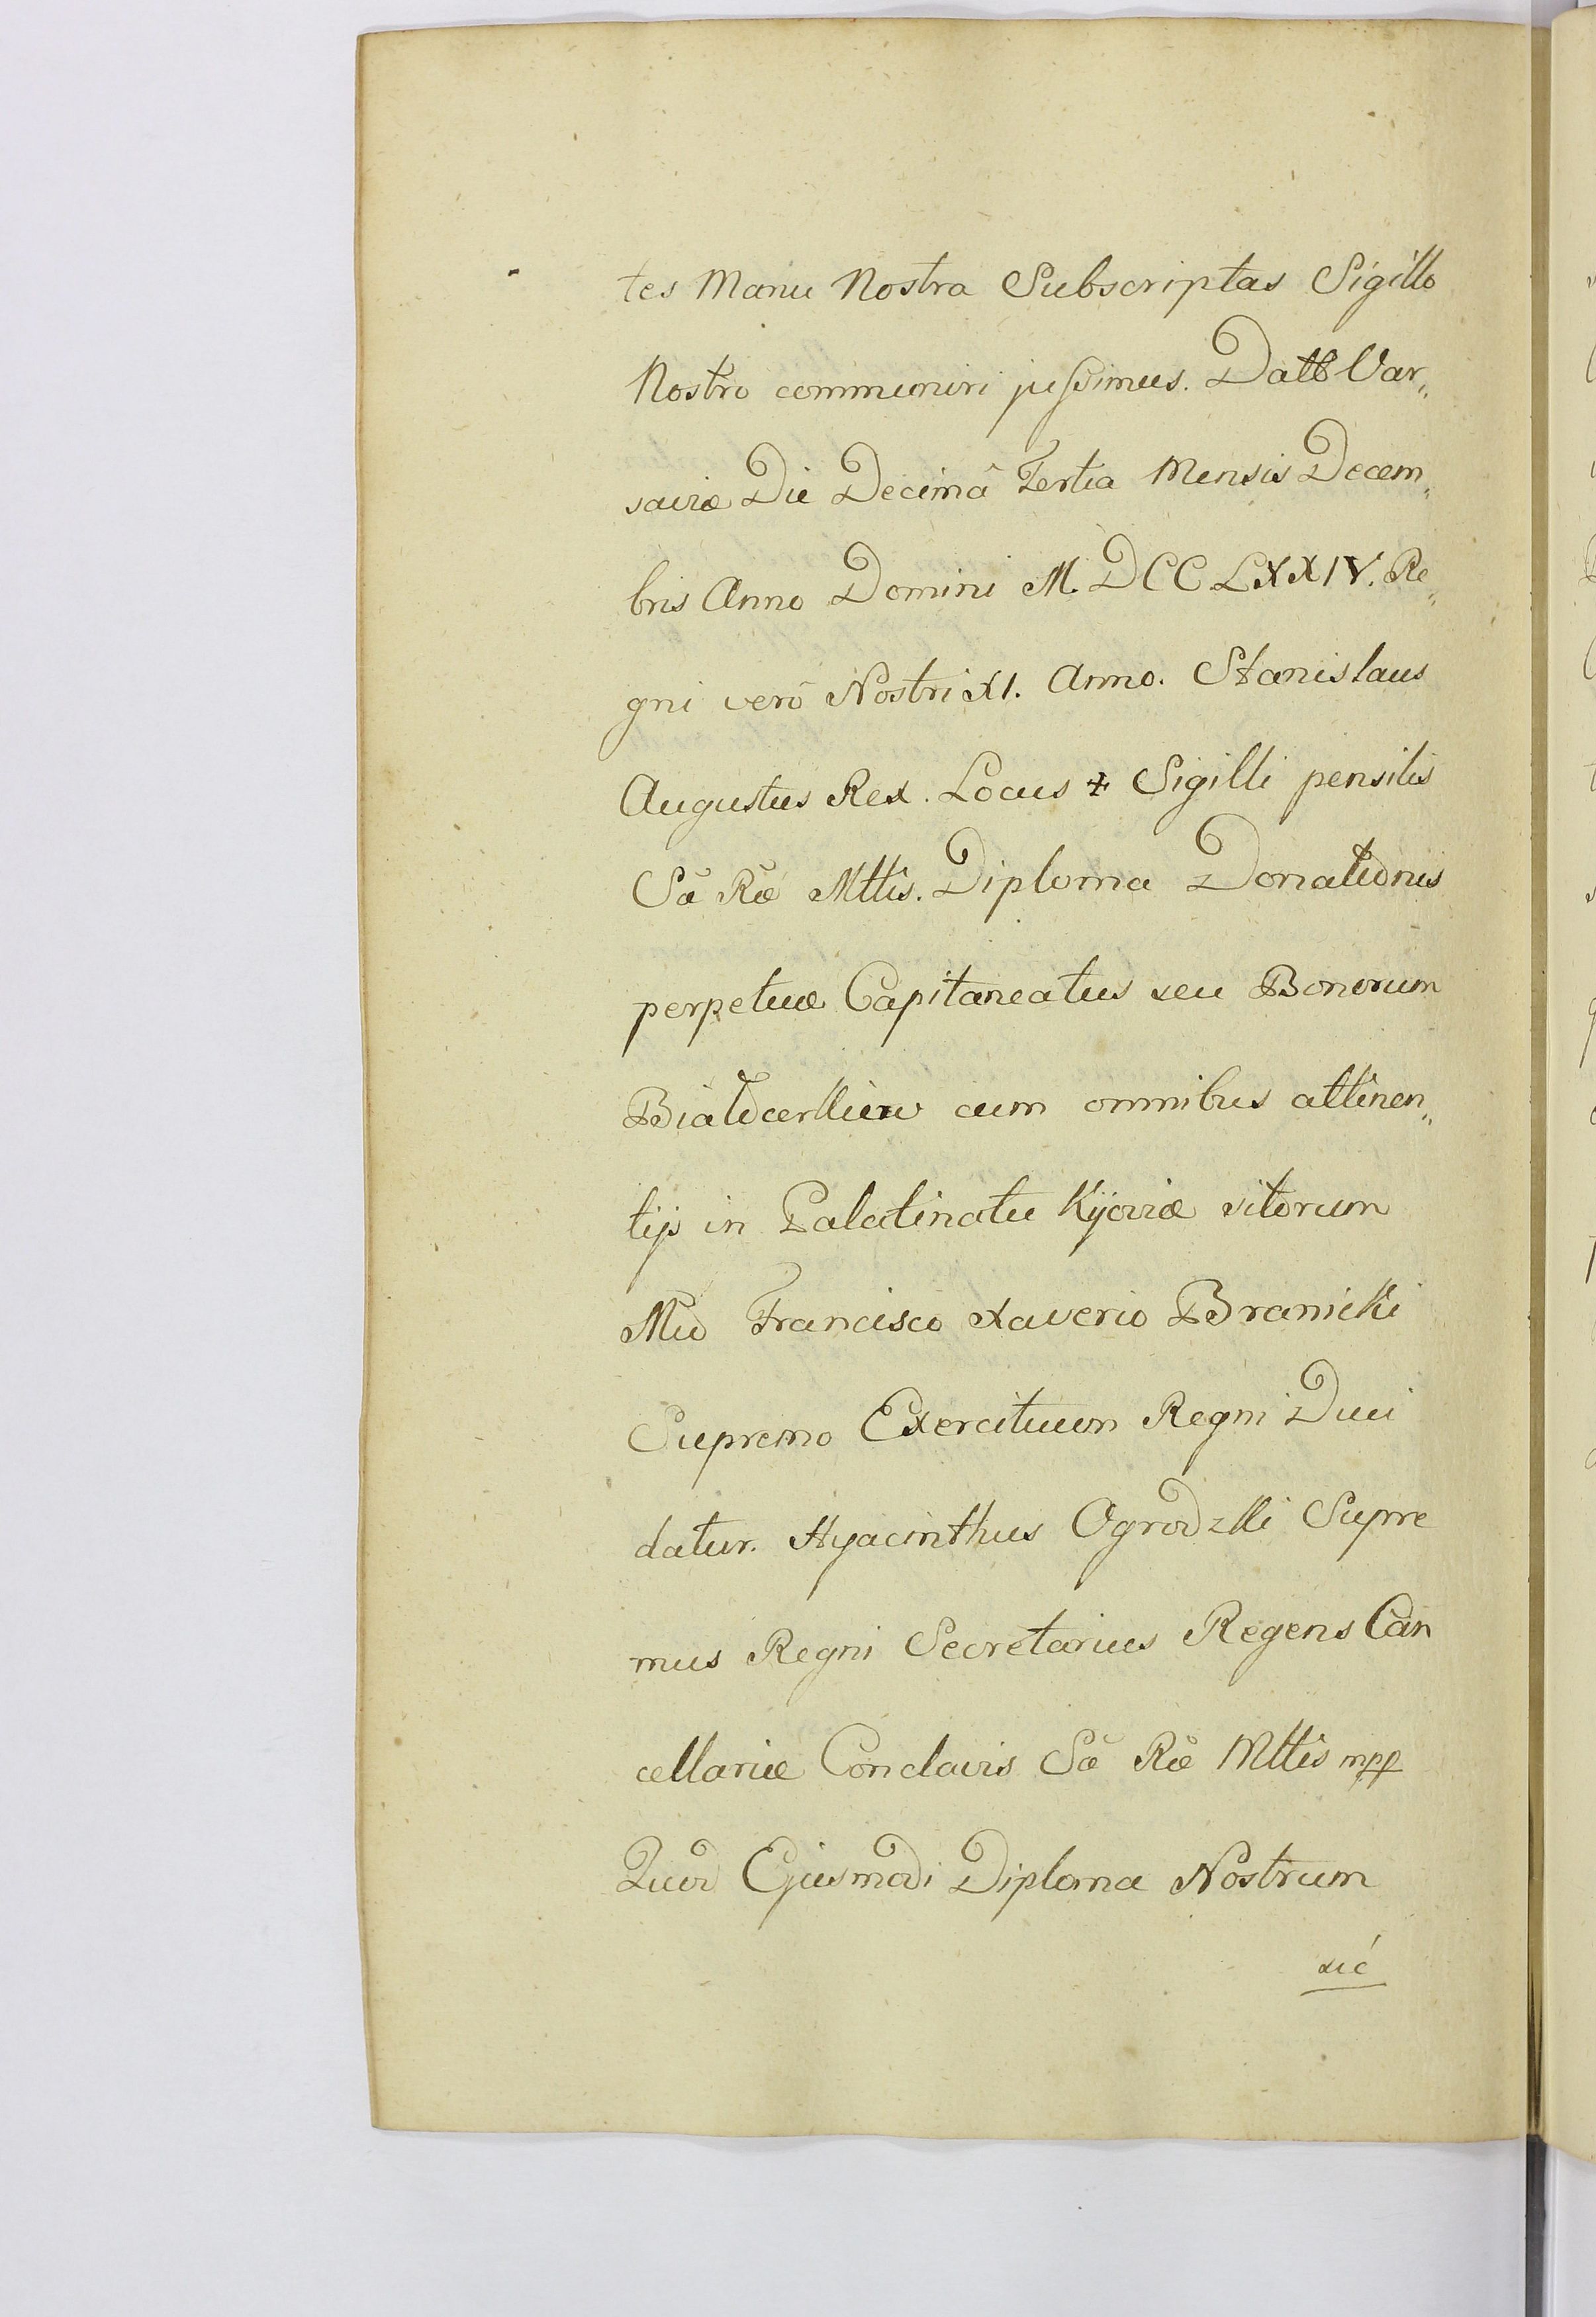 tes Manu Nostra Subscriptas Sigillo
Nostro communiri jussimus. Datt Var„
saviæ Die Decimâ Tertia Mensis Decem„
bris Anno Domini M. DCC LXXIV. Re„
gni verò Nostri XI. Anno. Stanislaus
Augustus Rex. Locus ‡ Sigilli pensilis
Sæ Ræ Mttis. Diploma Donationis
perpetuæ Capitaneatus seu Bonorum
cum omnibus attinen„
tijs in Palatinatu Kijoviæ sitorum
Mco Francisco Xaverio Branicki
Supremo Exercituum Regni Duci
datur. Hyacinthus Ogrodzki Supre
mus Regni Secretarius Regens Can
cellariæ Conclavis Sæ Ræ Mttis mpp
Quod Ejusmodi Diploma Nostrum
sic